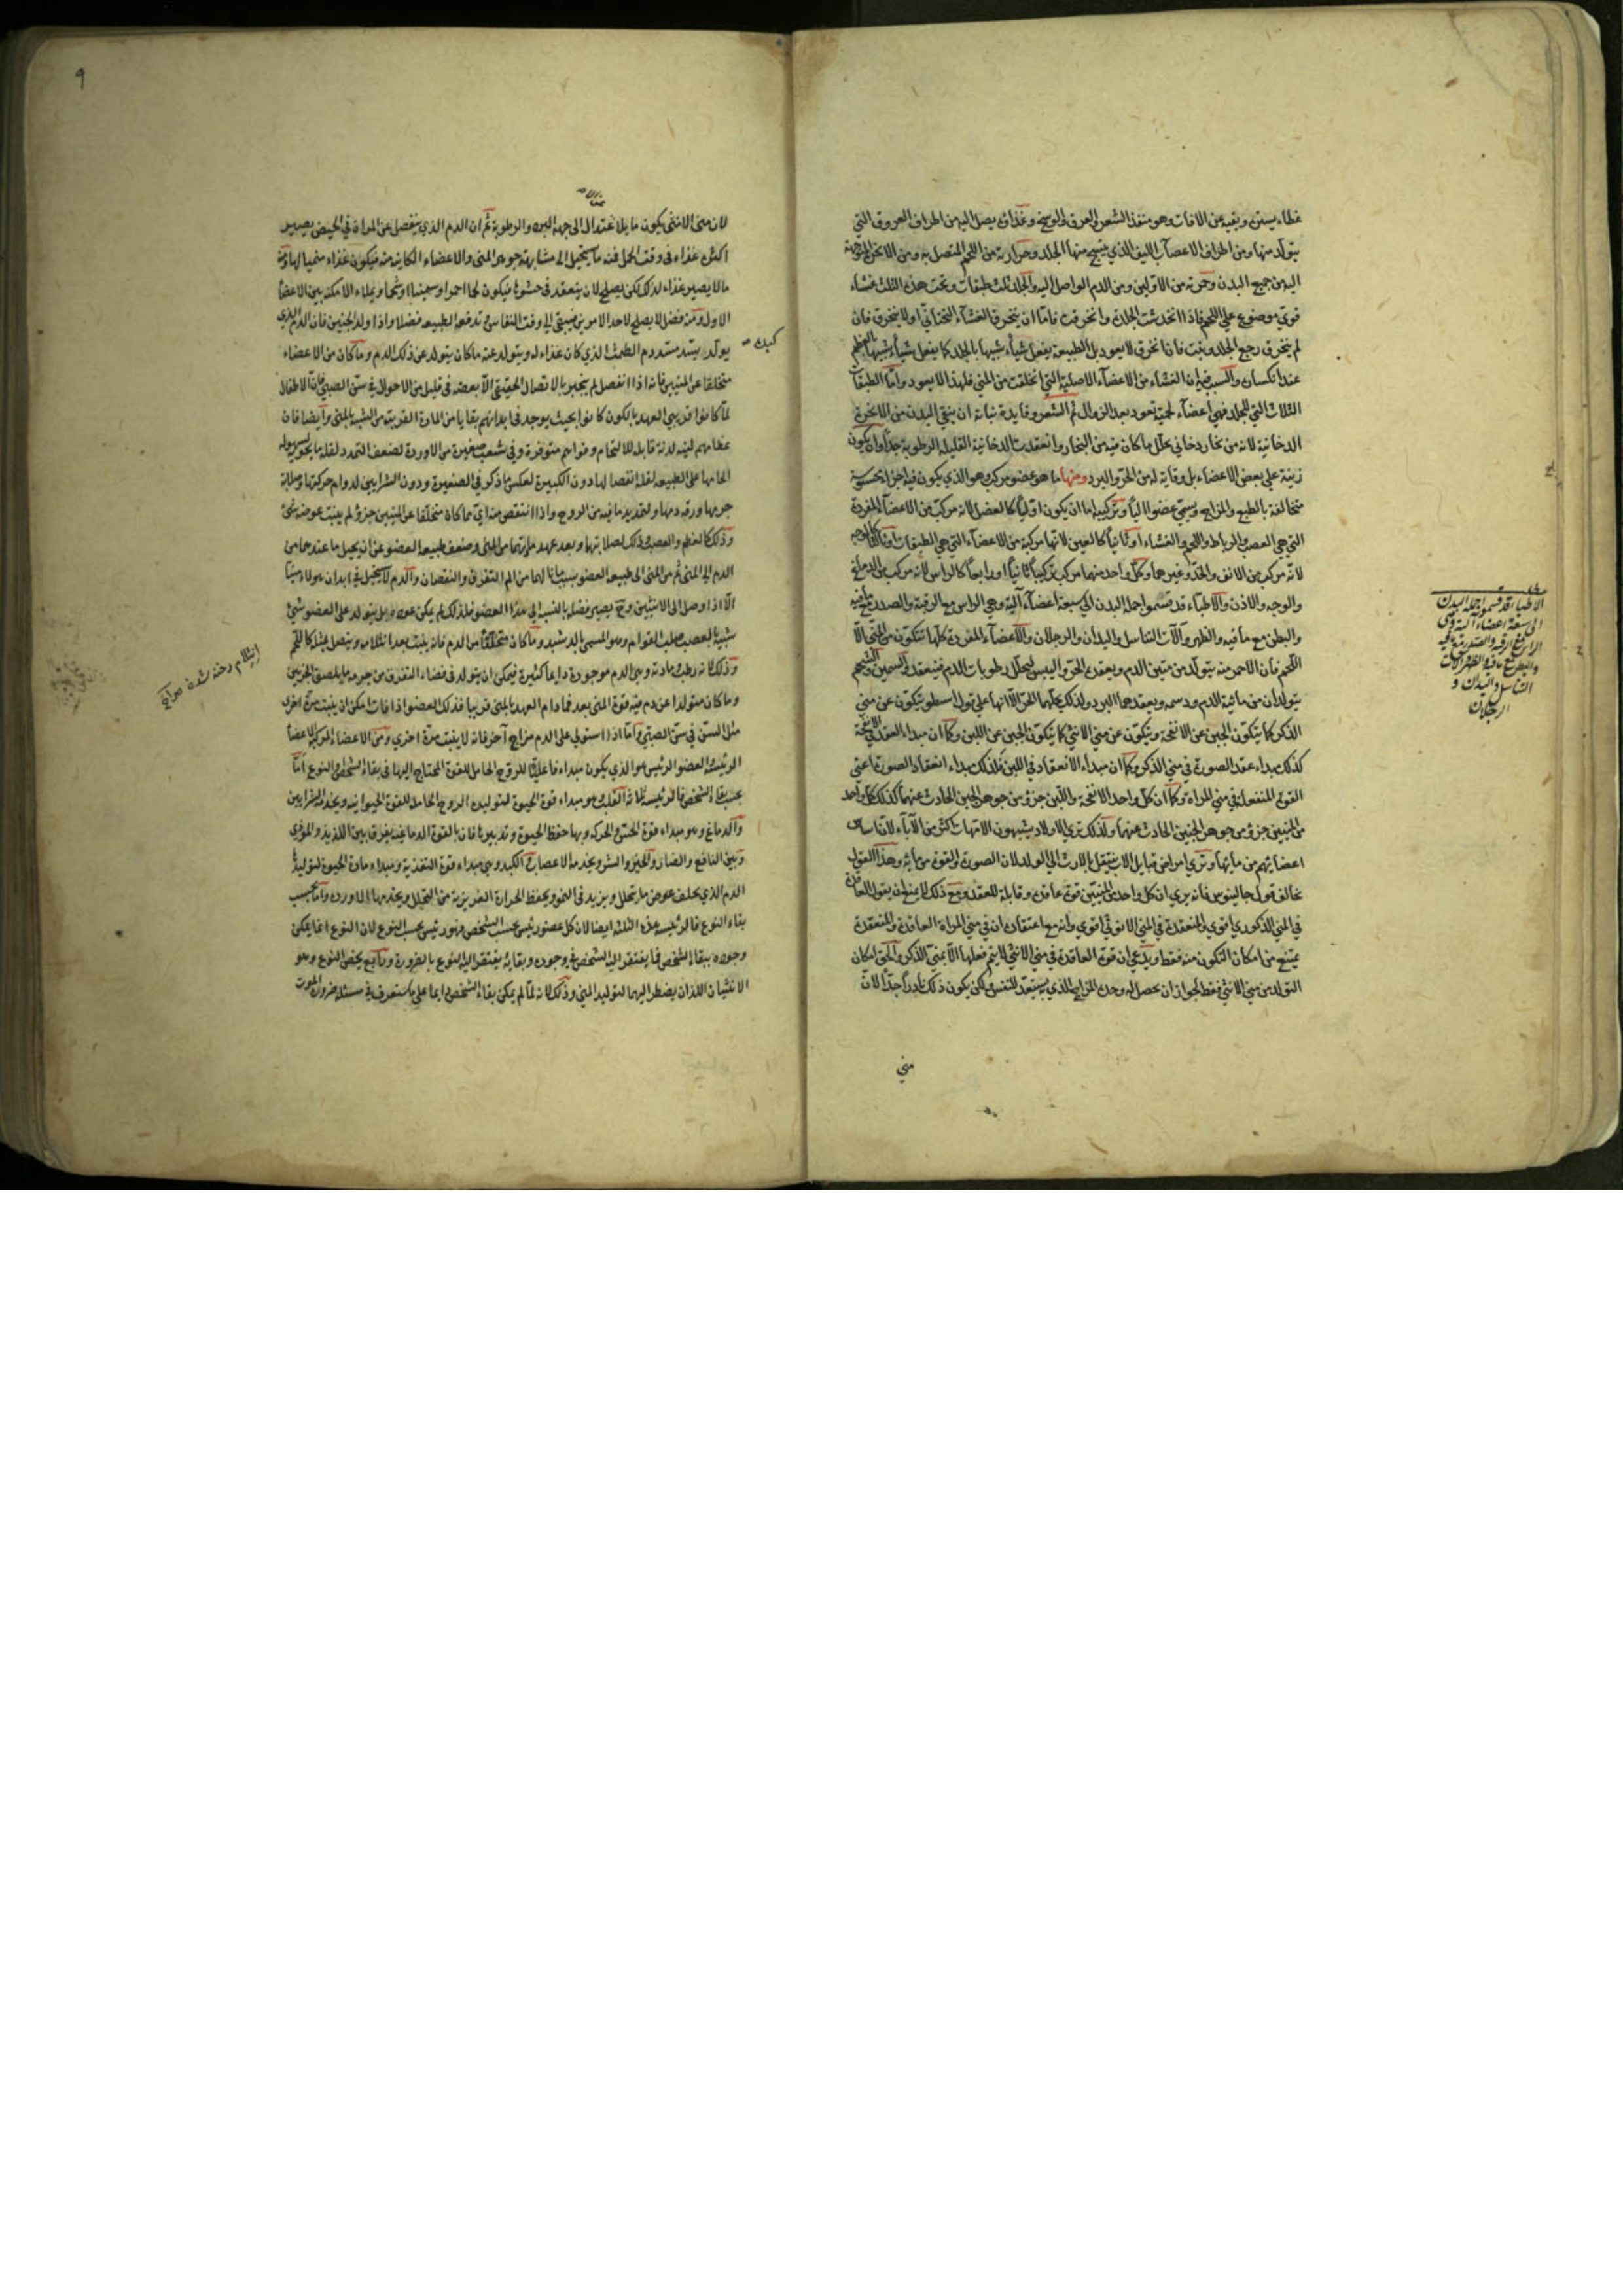 غطاء يستره ويقيه عن الافات وهو منفذ الشعر والعرق والوسخ وغذاؤه يصل اليه من اطراف العروق التي
يتولد منها ومن اطراف الاعصاب الليف الذي ينسج منها الجلد وحرارته من اللحم المتصل به ومن الابخرة المتوجهة
اليه من جميع البدن وحمرته من الاولين ومن الدم الواصل اليه والجلد ثلث طبقات وتحت هذه الثلث غشاء
قوي موضوع علي اللحم فاذا انخدشت الجلدة وانخرقت فاما ان ينخرق الغشاء التحتاني او لا ينخرق فان
لم ينخرق رجع الجلد ونبت فان انخرق لا يعود بل الطبيعة يفعل شيأ شبيها بالجلد كما يفعل شيأ شبيها بالعظم
عند انكساره والسبب فيه ان الغشاء من الاعضاء الاصلية التي انخلقت من المني فلهذا لا يعود واما الطبقات
الثلاث التي للجلد فهي اعضاء لحمية تعود بعد الزوال ثم الشعر وفايدة نباته ان ينقي البدن من الابخرة
الدخانية لانه من بخار دخاني تحلل ما كان فيه من البخار وانعقدت الدخانية القليلة الرطوبة جدا وان يكون
زينة علي بعض الاعضاء بل وقاية له من الحر والبرد ومنها ما هو عضو مركب وهو الذي يكون فيه اجزاء محسوسة
متخالفة بالطبع والمزاج ويسمي عضوا اليا وتركيبه اما ان يكون اوليا كالعضل لانه مركب من الاعضاء المفردة
التي هي العصب والرباط واللحم والغشاء او ثانيا كالعين لانها مركبة من الاعضاء التي هي الطبقات او ثالثا كالوجه
لانه مركب من الانف والخد وغيرهما وكل واحد منهما مركب تركيبا ثانيا او رابعا كالراس لانه مركب من الدماغ
والوجه والاذن والاطباء قد قسموا جملة البدن الي سبعة اعضاء آلية وهي الراس مع الرقبة والصدر مع ما فيه
والبطن مع ما فيه والظهر وآلات التناسل واليدان والرجلان والاعضاء المفردة كلها تتكون من المني الا
اللحم فان الاحمر منه يتولد من متين الدم ويعقده الحر واليبس لتحلل رطوبات الدم فينعقد والسمين والشحم
يتولدان من مائية الدم ودسمه ويعقدهما البرد ولذلك يحلهما الحر الا انها علي قول ارسطو يتكون عن مني
الذكر كما يتكون الجبن عن الانفحة ويتكون عن مني الانثي كما يتكون الجبن عن اللبن وكما ان مبداء العقد في الانفحة
كذلك مبداء عقد الصورة في مني الذكر وكما ان مبداء الانعقاد في اللبن فكذلك مبداء انعقاد الصورة اعني
القوة المنفعلة في مني المراة وكما ان كل واحد من الانفحة واللبن جزؤ من جوهر الجبن الحادث عنهما كذلك كل واحد
من المنيين جزؤ من جوهر الجنين الحادث عنهما ولذلك تري الاولاد يشبهون الامهات باكثر من الآباء لان اساس
اعضائهم من مائها وتري امراض قبايل الاب ينتقل بالارث الي الولد لان الصورة والقوة من مائه وهذا القول
يخالف قول جالينوس فانه يري ان كل واحد من المنيين قوة عاقدة وقابلة للعقد ومع ذلك لا يمتنع ان يقول العاقدة
في المني الذكوري اقوي والمنعقدة في المني الانوثي اقوي وانه مع اعتقاده ان في مني المراة العاقدة والمنعقدة
يمتنع من امكان التكون منه فقط ويدعي ان قوة العاقدة في مني الانثي لا يتم فعلها الا بمني الذكر والحق امكان
التولد من مني الانثي فقط لجواز ان يحصل له وحده المزاج الذي به يستعد للنفس لكن يكون ذلك نادرا جدا لان
مني
الاطباء قد قسموا جملة البدن
الي سبعة اعضاء آلية وهي
الراس مع الرقبة والصدر مع ما فيه
والبطن مع ما فيه والظهر وآلات
التناسل واليدان و
الرجلان
٩
لان مني الانثي يكون مايلا عن الاعتدال الي جهة البرد والرطوبة ثم ان الدم الذي ينفصل عن المراة في الحيض يصير
اكثره غذاء في وقت الحمل فمنه ما يستحيل الي مشابهة جوهر المني والاعضاء الكاينة منه فيكون غذاء منميا لها ومنه
ما لا يصير غذاء لذلك لكن يصلح لان ينعقد في حشوه فيكون لحما احمر او سمينا او شحما ويملاء الامكنة بين الاعضاء
الاول ومنه فضل لا يصلح لاحد الامرين فيبقي الي وقت النفاس وتدفعه الطبيعة فضلا واذا ولد الجنين فان الدم الذي
يولده كبده يسد مسد دم الطمث الذي كان غذاء له ويتولد عنه ما كان يتولد عن ذلك الدم وما كان من الاعضاء
متخلقا عن المنيين فانه اذا انفصل لم ينجبر بالاتصال الحقيقي الا بعضه في قليل من الاحوال في سن الصبي فان الاطفال
لما كانوا قريبي العهد بالكون كانوا بحيث يوجد في ابدانهم بقايا من المادة القريبة من الشبيه بالمني وايضا فان
عظامهم لينة لدنة قابلة للالتحام وقواهم متوفرة وفي شعب صغيرة من الاوردة لضعف التمدد لقلة ما يحويه لسهولة
الحامها علي الطبيعة لقلة انفصالها دون الكبيرة لعكس ما ذكر في الصغيرة ودون الشرايين لدوام حركتها وصلابة
جرمها ورقة دمها ولتمديد ما فيه من الروح واذا انتقص منه اي مما كان متخلقا عن المنيين جزؤ لم ينبت عوضه شئ
وذلك كالعظم والعصب وذلك لصلابتها وبعد عهد مادتهما من المني وضعف طبيعة العضو عن ان يحيل ما عندهما من
الدم الي المني ثم من المني الي طبيعة العضو بسبب ما نالهما من الم التفرق والنقصان والدم لا يستحيل في ابدان هولاء منيا
الا اذا وصل الي الانثيين وح يصير فضلة بالنسبة الي هذا العضو فلذلك لم يكن عوضه بل يتولد علي العضو شئ
شبيه بالعصب صلب القوام وهو المسمي بالدشبد وما كان متخلقا من الدم فانه ينبت بعد انثلامه ويتصل بمثله كاللحم
وذلك لانه رطب ومادته وهي الدم موجودة دايما كثيرة فيمكن ان يتولد في فضاء التفرق من جوهره ما يلصق الجزئين
وما كان متولدا عن دم فيه قوة المني بعد فما دام العهد بالمني قريبا فذلك العضو اذا فات امكن ان ينبت مرة اخري
مثل السن في سن الصبي واما اذا استولي علي الدم مزاج آخر فانه لا ينبت مرة اخري ومن الاعضاء المركبة الاعضاء
الرئيسة والعضو الرئيس هو الذي يكون مبداء فاعليا للروح الحامل للقوة المحتاج اليها في بقاء الشخص او النوع اما
بحسب بقاء الشخص فالرئيسة ثلاثة القلب وهو مبداء قوة الحيوة لتوليده الروح الحامل للقوة الحيوانية ويخدمه الشرايين
والدماغ وهو مبداء قوة الحس والحركة وبها حفظ الحيوة وتدبيرها فان بالقوة الدماغية يفرق بين اللذيذ والموذي
وبين النافع والضار والخير والشر ويخدمه الاعصاب والكبد وهي مبداء قوة التغذية ومبداء مادة الحيوة لتوليدها
الدم الذي يخلف عوض ما يتحلل ويزيد في النمو ويحفظ الحرارة الغريزية من التحلل ويخدمها الاوردة واما بحسب
بقاء النوع فالرئيسة هذه الثلثة ايضا لان كل عضو رئيس بحسب الشخص فهو رئيس بحسب النوع لان النوع انما يمكن
وجوده ببقاء الشخص فما يفتقر اليه الشخص في وجوده وبقايه يفتقر اليه النوع بالضرورة ورابع يخص النوع وهو
الانثيان اللذان يضطر اليهما لتوليد المني وذلك لانه لما لم يمكن بقاء الشخص دايما علي ما ستعرف في مسئلة ضرورة الموت
كبده صح
انثلام رخنه شدن صراح